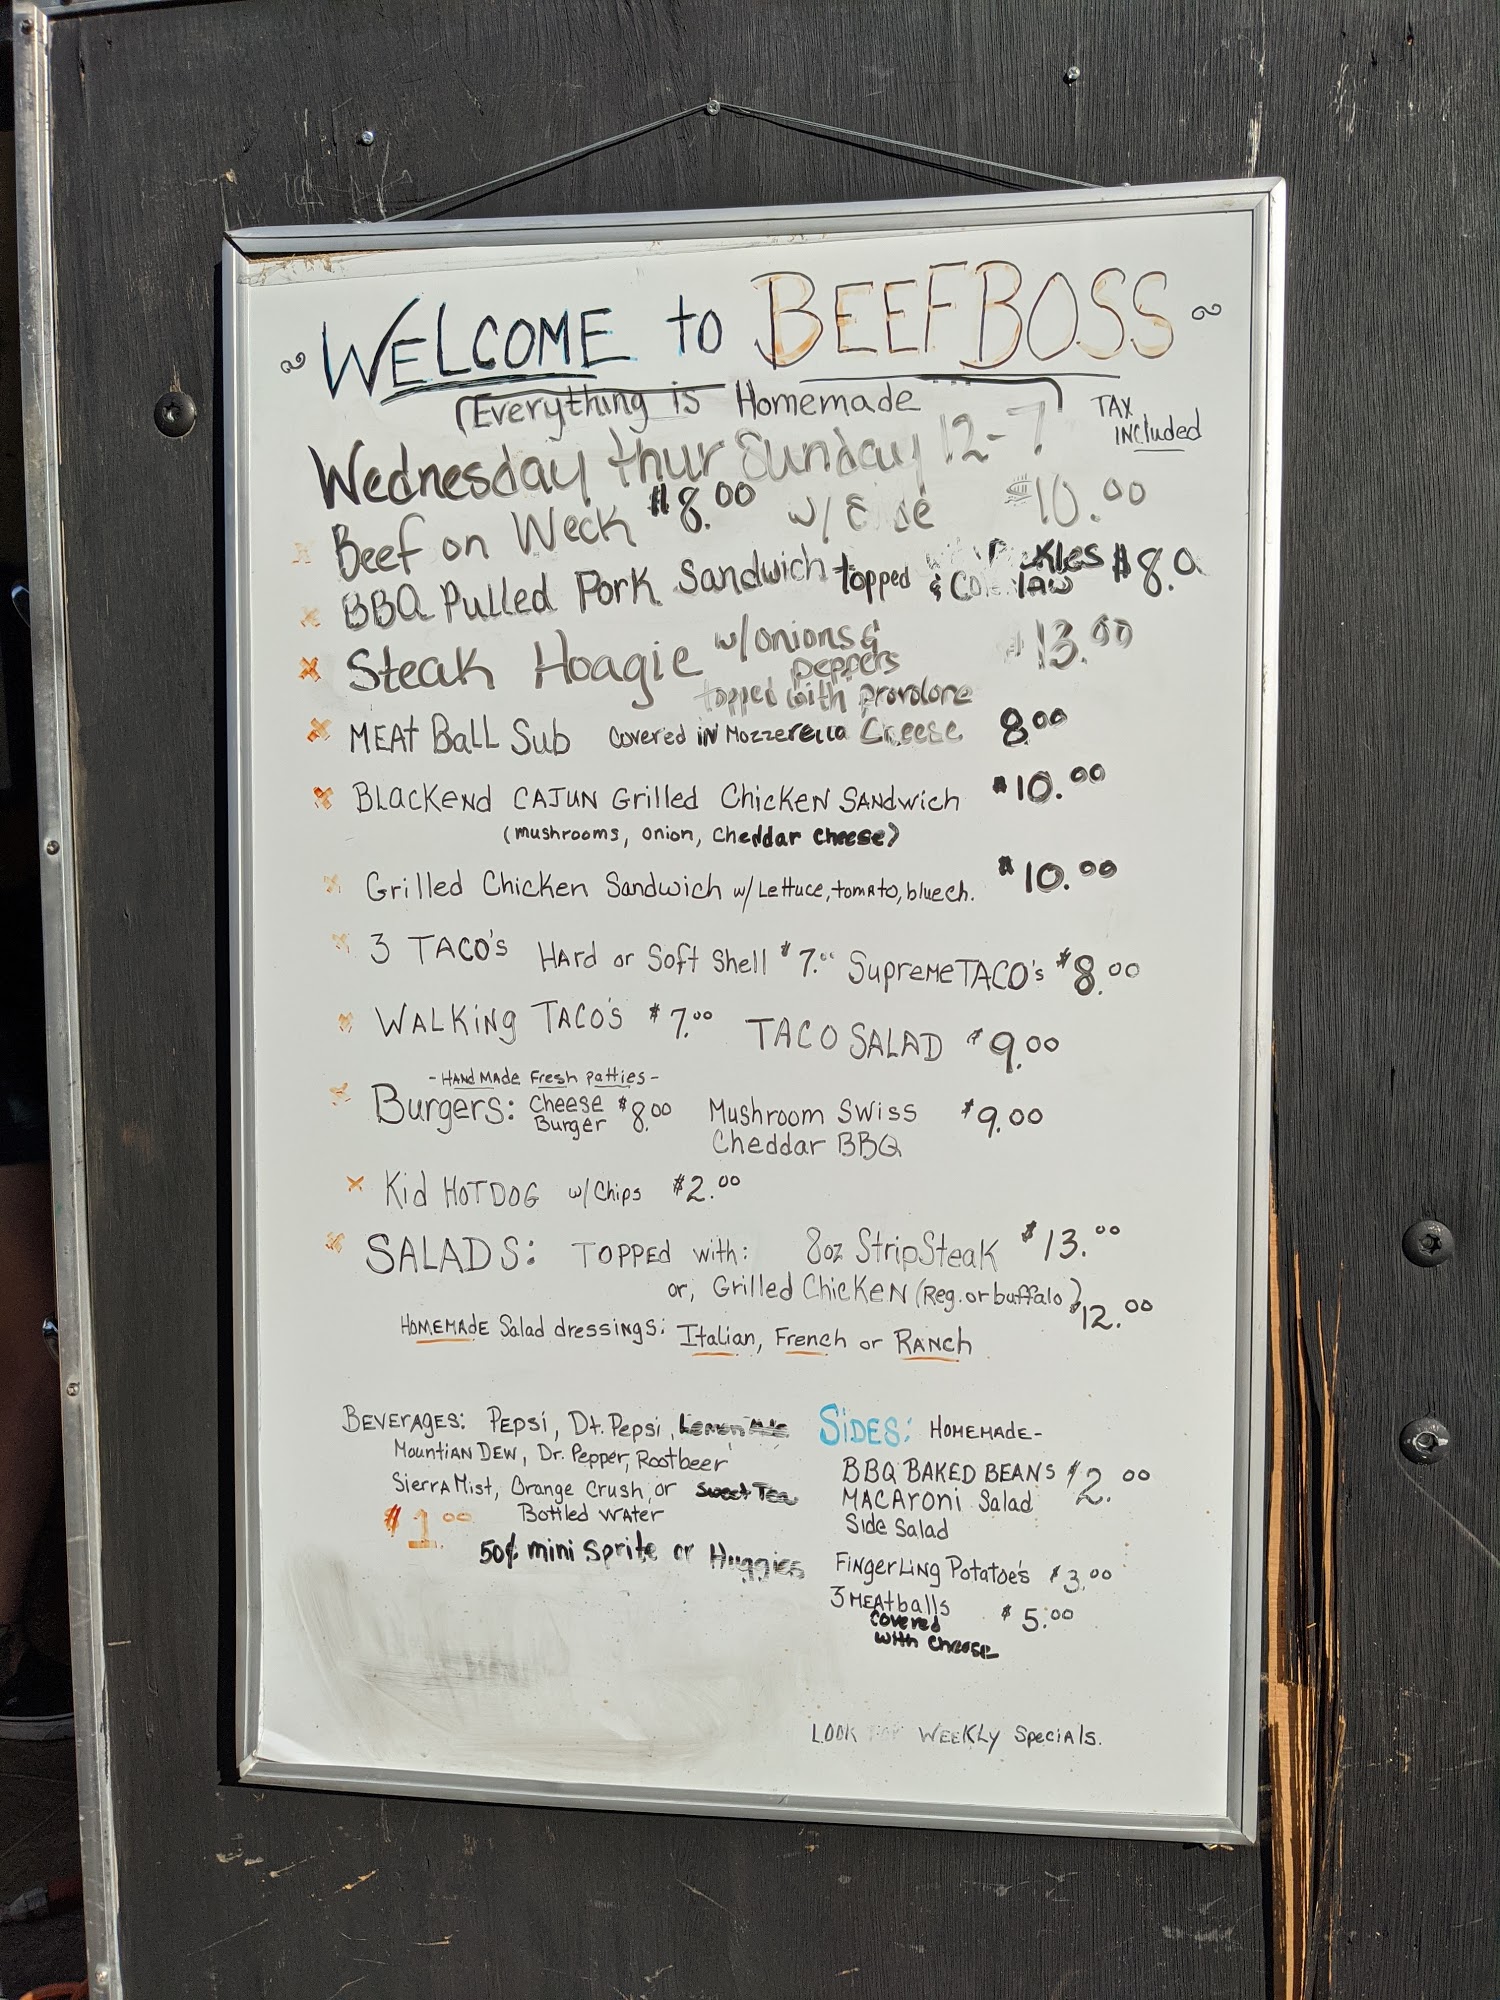 WELCOME to BEEFBOSS
(Everything is Homemade)
TAX INCluded
Wednesday thur Sunday 12-7
Beef on Weck $8.00 w/ $10.00
BBQ Pulled Pork Sandwich topped with Pickles & Coleslaw $8.0
Steak Hoagie w/onions & peppers topped with provolone $13.00
MEAt BaLL Sub Covered iN Mozzerella Cheese 8.00
BLacKeNd CAJUN Grilled ChickeN SANdwich $10.00
(mushrooms, onion, Cheddar Cheese)
Grilled Chicken Sandwich w/ Lettuce, tomato, blue ch. $10.00
3 TACO's HArd or Soft Shell $7.00 SupremeTACO's $8.00
WALKiNg TACO'S $7.00 TACO SALAD $9.00
-HANd MAde Fresh Patties-
Burgers: Cheese Burger $8.00 Mushroom Swiss $9.00
Cheddar BBQ
Kid HOTDOG w/Chips $2.00
SALADS: TOPPEd with: 8oz StripSteak $13.00
or, Grilled ChickeN (Reg. or buffalo) $12.00
HOMEMAdE Salad dressings: Italian, French or RANch
BEVERAGES: PEPSi, Dt. Pepsi,
MountiAN DEW, Dr. Pepper, Rootbeer
SierrA Mist, Orange Crush, or Sweet Tea
Bottled WAter
$1.00
50¢ mini Sprite or Huggies
SiDES: HOMEMADE-
BBQ BAKED BEANS $2.00
MACAroni Salad
Side Salad
FiNgerLiNg Potatoe's $3.00
3 MEAtballs $5.00
Covered
with cheese
LOOK FOR WEEKLy SpeciAls.